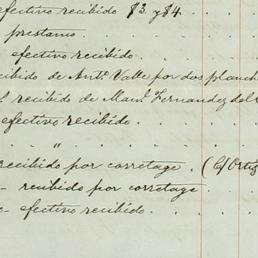 efectivo recibido $3. y $4.
prestamo
efectivo recibido
recibido de Ant.º Valle por dos planch
recibido de Man.l Fernandez del
efectivo recibido
"
recibido por corretage. (C/ Ortiz
- recibido por corretage
- efectivo recibido.